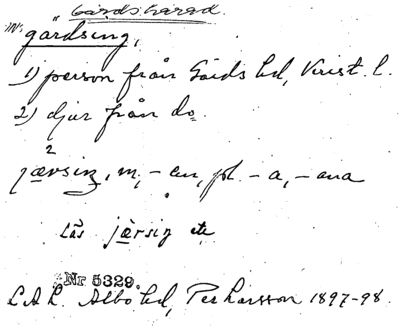 Gärds härad.
m. gärdsing,
1) person från Gärds hd, Krist. l.
2) djur från do.
2
jærsiŋ, m, - en, pl. - a, - ana
Läs jærsiŋ etc
Nr 5329.
L.A.L. Albo hd, Per Larsson 1897-98.